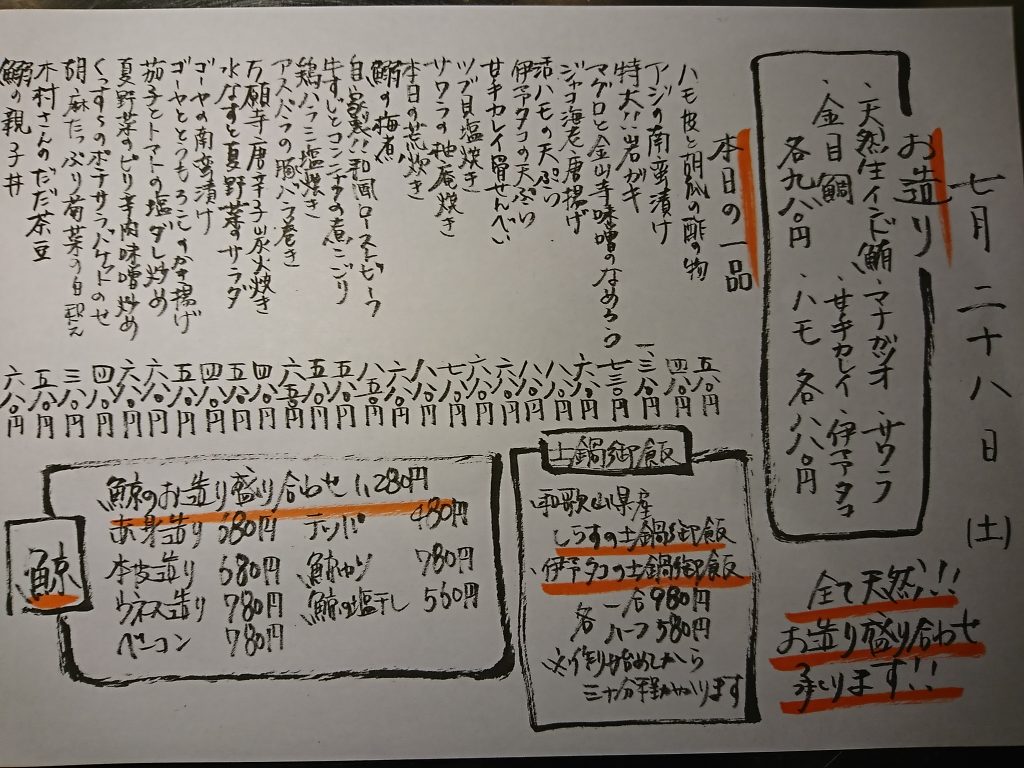 七月二十八日(土)
お造り
・天然生インド鮪・マナガツオ・サワラ
・金目鯛・甘手カレイ・伊予タコ
各九八〇円・ハモ 各八八〇円
全て天然!!
お造り盛り合わせ
承ります!!
本日の一品
ハモ皮と胡瓜の酢の物 五八〇円
アジの南蛮漬け 四八〇円
特大!!岩ガキ 一、三八〇円
マグロと金山寺味噌のなめろう 七三〇円
ジャコ海老唐揚げ 六八〇円
活ハモの天ぷら 八八〇円
伊予タコの天ぷら 八八〇円
甘手カレイ骨せんべい 六八〇円
ツブ貝塩焼き 六八〇円
サワラの柚庵焼き 七八〇円
本日の荒炊き 八八〇円
鮪の梅煮 六八〇円
自家製!!和風ローストビーフ 八五〇円
牛すじとコンニャクの煮こごり 五八〇円
鶏ハラミ塩焼き 五八〇円
アスパラの豚バラ巻き 六五〇円
万願寺唐辛子炭火焼き 四八〇円
水なすと夏野菜サラダ 五八〇円
ゴーヤの南蛮漬け 四八〇円
ゴーヤととうもろこしのかき揚げ 五八〇円
茄子とトマトの塩ダレ炒め 六八〇円
夏野菜のピリ辛肉味噌炒め 六八〇円
のポテサラバケットのせ 四八〇円
胡麻たっぷり菊菜の白和え 三八〇円
木村さんのだだ茶豆 五八〇円
鮪の親子丼 六八〇円
土鍋御飯
・和歌山県産
しらすの土鍋御飯
・伊予タコの土鍋御飯
各 一合 980円
ハーフ 580円
※作り始めてから
三十分程かかります
鯨
鯨のお造り盛り合わせ 1,280円
赤身造り 680円 テッパ 480円
本皮造り 680円 鯨ユッケ 780円
ウネス造り 780円 鯨の塩干し 560円
ベーコン 780円